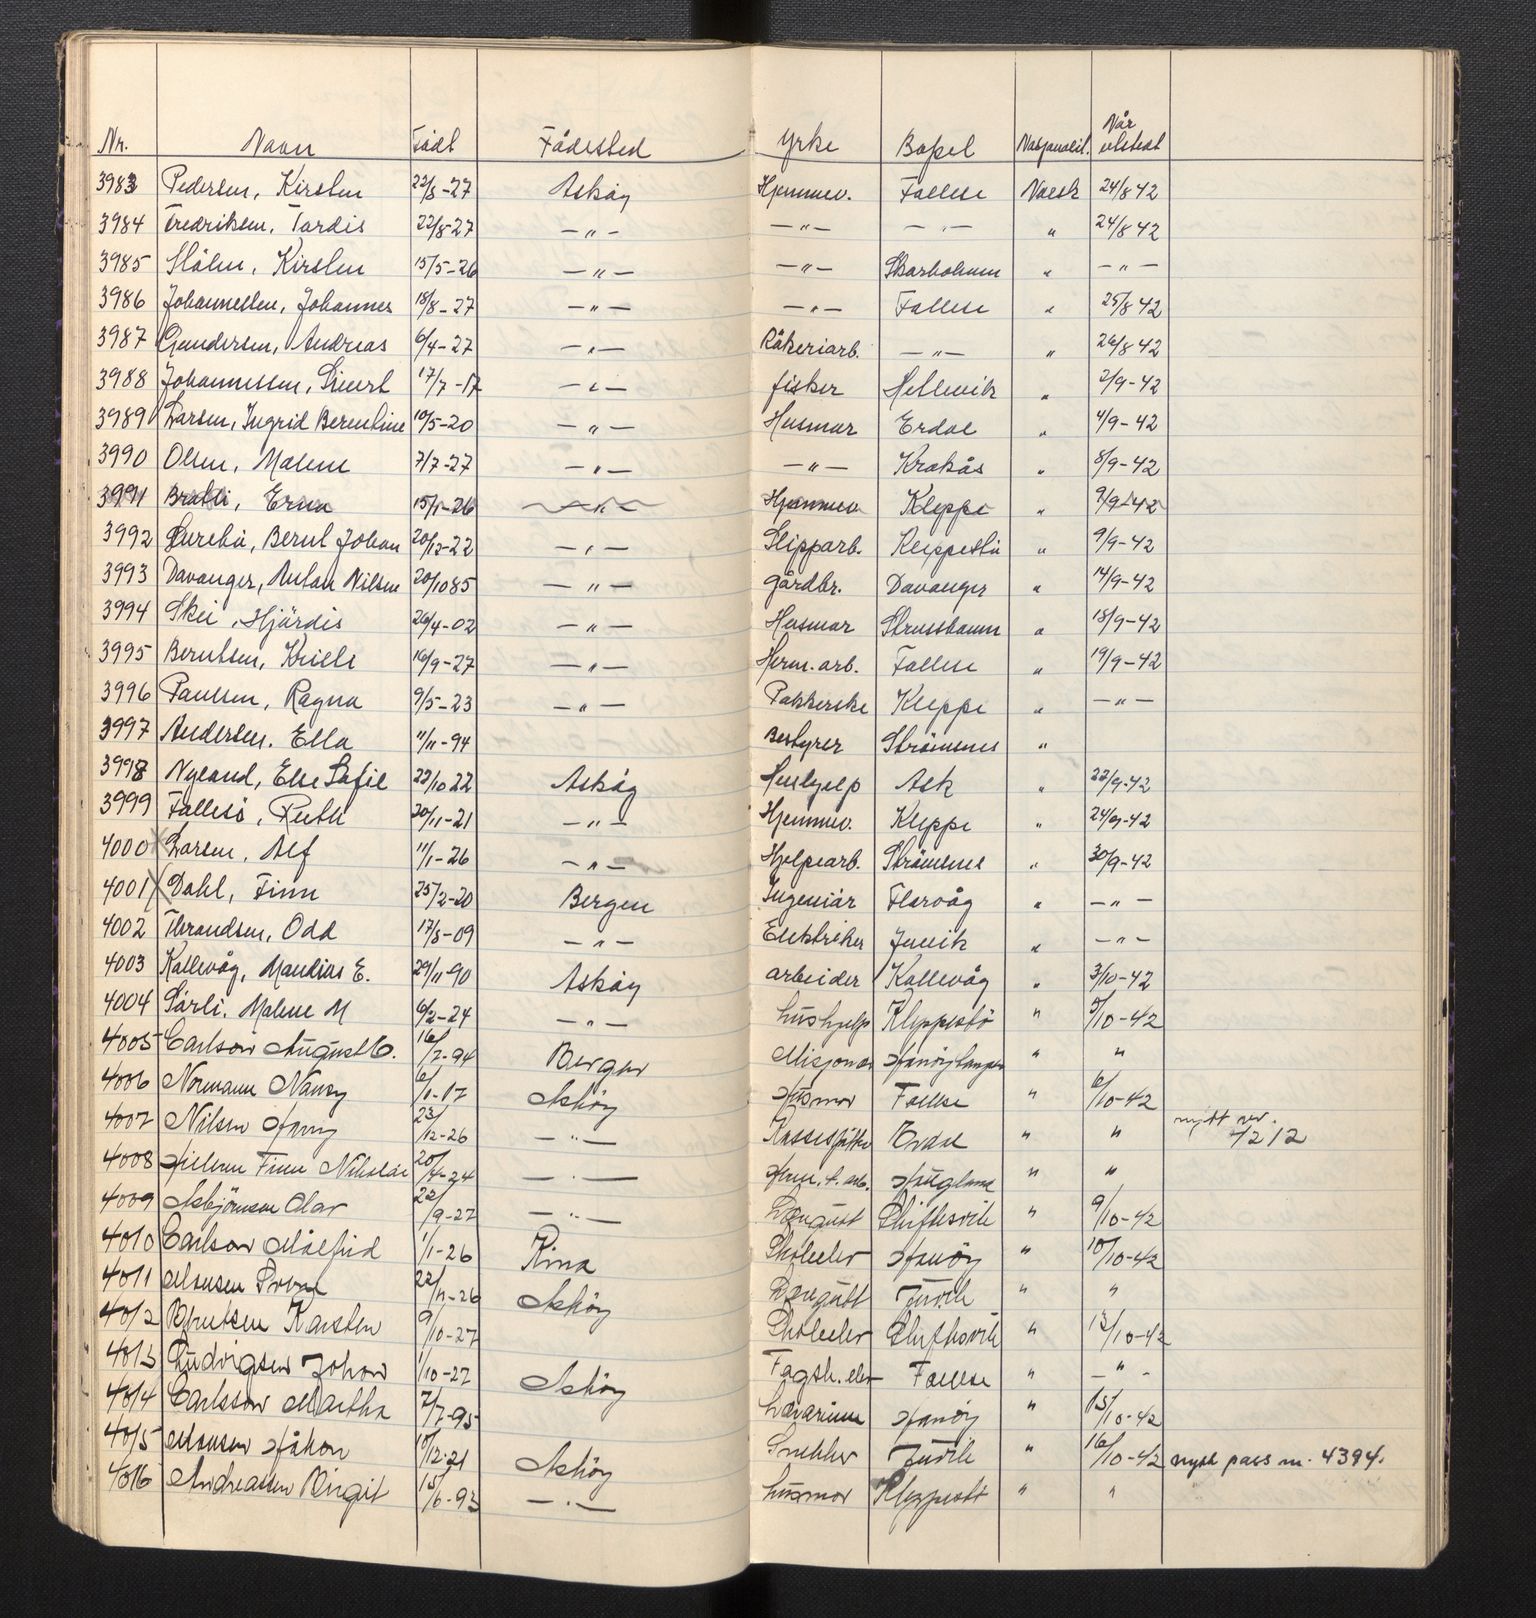 Nr. Navn Född Fødested Yrke Bopel Nasjonalit. Når utstedt
3983 Pedersen, Kirsten 22/8-27 Askøy Hjemmev. Follese Norsk 24/8 42
3984 Fredriksen, Tordis 22/8-27 —"— —"— —"— " 24/8 42
3985 Stölen, Kirsten 15/5-26 —"— —"— Skarholmen " —"—
3986 Johannessen, Johannes 18/8-27 —"— —"— Follese " 25/8 42
3987 Gundersen, Andreas 6/4-27 —"— Røkeriarb. —"— " 26/8 42
3988 Johannessen, Sivert 17/7-17 —"— fisker Hetlevik " 2/9-42
3989 Larsen, Ingrid Berentine 10/5-20 —"— Husmor Erdal " 4/9-42
3990 Olsen, Malene 7/7-27 —"— —"— Krokås " 8/9-42
3991 Bratli, Erna 15/1-26 —"— Hjemmev. Kleppe " 9/9-42
3992 Bernt Johan 20/12-22 —"— Slipparb. Kleppestö " 9/9-42
3993 Davanger, Anton Nilsen 20/10 85 —"— gårdbr. Davanger " 14/9-42
3994 Skei, Hjördis 26/4-02 —"— Husmor Strusshamn " 18/9-42
3995 Berntsen, 16/9-27 —"— Herm. arb. Follese " 19/9-42
3996 Paulsen, Ragna 9/5-23 —"— Pakkerske Kleppe " —"—
3997 Andersen, Ella 11/11-94 Bestyrer Strömsnes "
3998 Nyland, Else Sofie 22/10 22 Askøy Hushjelp Ask " 22/9-42
3999 Follesö, Ruth 20/11-21 —"— Hjemmev. Kleppe " 24/9-42
4000 Larsen, Alf 11/1-26 —"— Hjelpearb. Strömsnes " 30/9-42
4001 Dahl, Finn 25/2-20 Bergen Ingeniör Florvåg " —"—
4002 Tbrandsen, Odd 17/8-09 —"— Elektriker Juvik " —"—
4003 Kollevåg, Mandius E. 29/11-90 Askøy arbeider Kollevåg " 3/10-42
4004 Sörli, Malene M 6/2-24 —"— hushjelp Kleppestö " 5/10-42
4005 Carlson August C. 16/7-94 Bergen Misjonær " "
4006 Normann Nancy 6/1-17 Askøy Husmor Follese " 6/10-42
4007 Nilsen Harry 23/12-26 —"— Erdal " " nytt nr. 4212
4008 Finn Nikolai 20/4-24 —"— Herm. f. arb. Haugland " "
4009 Asbjörnsen Olav 22/9-27 —"— Dekgutt Skiftesvik " 9/10-42
4010 Carlson Målfrid 1/1-26 Kina Skoleelev Hanöy " 10/10-42
4011 Monsen Sverre 22/11-26 Askøy Dekgutt Juvik " "
4012 Knutsen Karsten 9/10-27 Skoleelev Skiftesvik " 13/10-42
4013 Ludvigsen Johan 1/10-27 Askøy Fagsk. elev Follese " —"—
4014 Carlsson Martha 7/7-95 Lærarinne Hanöy " 15/10-42
4015 Monsen Håkon 10/12-21 Askøy Snekker Juvik " 16/10-42 nytt pass nr. 4394.
4016 Andreassen Birgit 15/6-93 —"— husmor Kleppestö " "